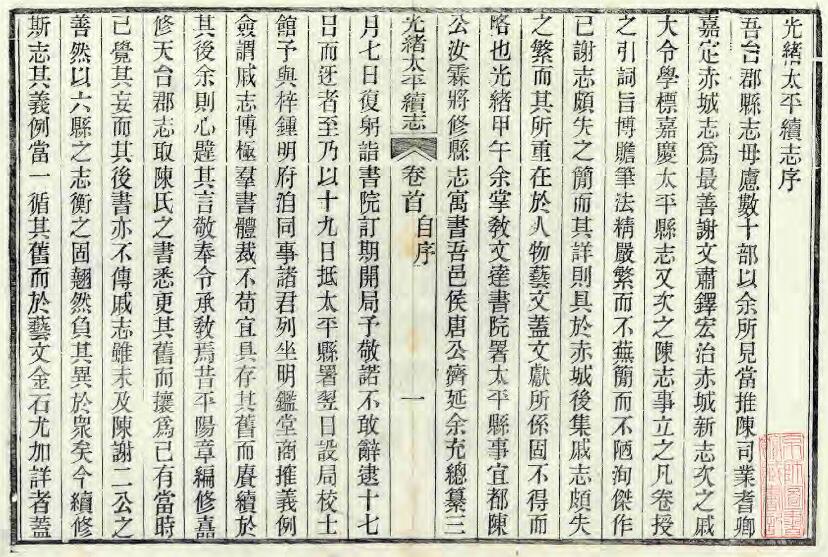 光緒太平續志序
吾台郡縣志毋慮數十部以余所見當推陳司業耆卿
嘉定赤城志爲最善謝文肅鐸宏治赤城新志次之戚
大令學標嘉慶太平縣志又次之陳志事立之凡卷授
之引詞旨博贍筆法精嚴繁而不蕪簡而不陋洵傑作
已謝志頗失之簡而其詳則具於赤城後集戚志頗失
之繁而其所重在於人物藝文蓋文獻所係固不得而
略也光緒甲午余掌教文達書院署太平縣事宜都陳
公汝霖將修縣志寓書吾邑侯唐公濟延余充總纂三
光緒太平續志
卷首
自序
一
月七日復躬詣書院訂期開局予敬諾不敢辭逮十七
日而迓者至乃以十九日抵太平縣署翌日設局校士
館予與梓鍾明府洎同事諸君列坐明鑑堂商推義例
僉謂戚志博極羣書體裁不苟宜具存其舊而賡續於
其後余則心韙其言敬奉令承教焉昔平陽章編修嘉
修天台郡志取陳氏之書悉更其舊而攘爲己有當時
已覺其妄而其後書亦不傳戚志雖未及陳謝二公之
善然以六縣之志衡之固翹然負其異於衆矣今續修
斯志其義例當一循其舊而於藝文金石尤加詳者蓋